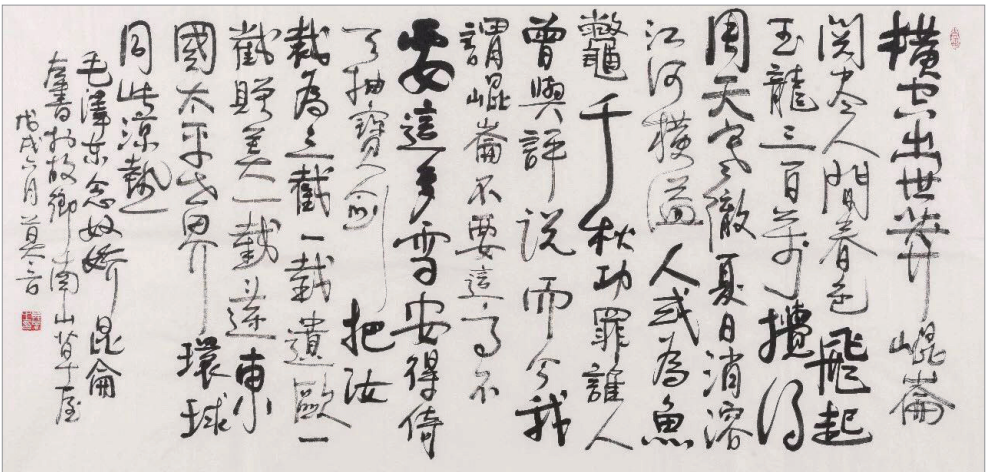 橫空出世莽崐崙
閱尽人間春色飛起
玉龍三百萬攪得
周天寒徹夏日消溶
江河橫溢人或為魚
鼈千秋功罪誰人
曾與評説而今我
謂崐崙不要這高不
要這多雪安得倚
天抽寶劍把汝
裁為三截一截遺歐一
截贈美一截還東
國太平世界環球
同此涼熱
毛澤東念奴嬌昆侖
書於故鄉南山草屋
戊戌六月莫言